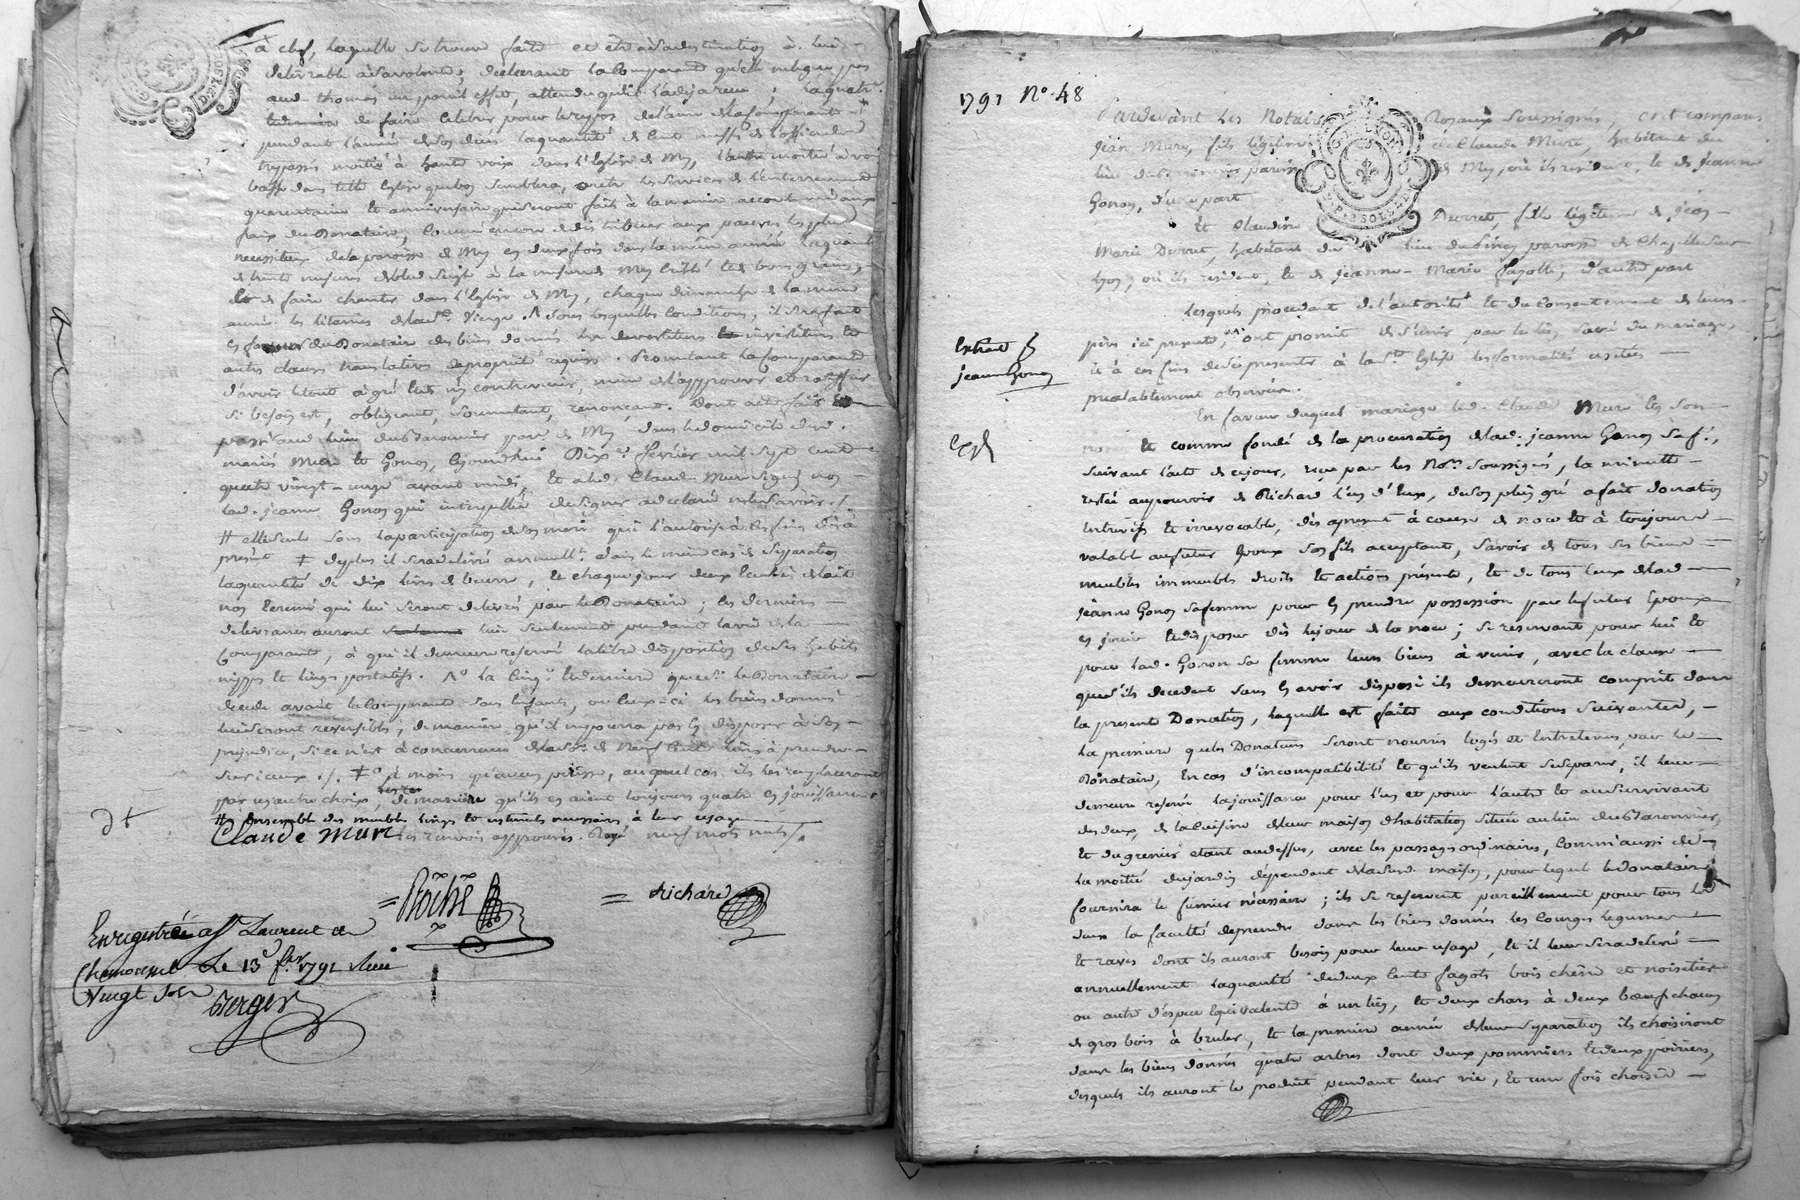 a chef, laquelle se trouve faite et
delivrable à sa volonté; declarant la Comparante qu'elle n'elegue pas
aud. thomas un pareil effet, attendu qu'il l'a deja recu;
de faire celebrer pour le repos de l'ame de la Comparante
pendant l'année de son deces la quantité de Cent messes de
trepassés moitié à haute voix dans l'Eglise de Mÿs, l'autre moitié à voix
basse dans telle Eglise que bon semblera, outre les services de l'enterrement
quarantaine et anniversaire qui seront faits à la manière accoutumée aux
frais du Donataire; comme encore de distribuer aux pauvres les plus
necessiteux de la paroisse de Mÿs en deux fois dans la même année la quantité
de mesures de bled seigle à la mesure de Mÿs
de faire chanter dans l'Eglise de Mÿs, chaque dimanche de la même
année les litanies de la Ste. Vierge. Sous lesquelles Conditions, il sera fait
en faveur du Donataire des biens donnés les devestitures investitures et
autres clauses translatives de propriété requises. Promettant la Comparante
d'avoir le tout à gré
si besoin est, obligeant, soumettant, renonçant. Dont acte fait
passé aud. lieu du Baronnier parse. de Mÿs dans le domicile desd.
mariés Mure et Gonon, cejourd'hui Dixe. février mil sept cent
quatre vingt-onze avant midi, et a led. Claude Mure signé non
lad. jeanne Gonon qui interpellée de signer a declaré ne le savoir ./.
# elle seule sans la participation de son mari qui l'autorise à ces fins d'ici à
present ‡ de plus il sera delivré annuellt. dans le même cas de separation
la quantité de dix livres de beurre, et chaque jour deux de lait
non ecremé qui lui seront delivrés par le Donataire; ces dernières
delivrances auront lieu seulement pendant la vie de la
Comparante, à qui il demeure reservé la libre disposition de ses habits
nippes et linges portatifs. La cinqe. et dernière que si le Donataire
decede avant la Comparante sans enfants, ou ceux-ci les biens donnés
lui seront reversibles, de manière qu'il ne pourra pas en disposer à son
prejudice, si ce n'est à concurrence de la somme de neuf cent livres à prendre
sur iceux ./. à moins qu'aucun perisse, auquel cas ils les remplaceront
par un autre choix, de manière qu'ils en aient toujours quatre en jouissance
# ensemble des meubles linges et ustensils necessaires à leur usage
Claude mure les renvois approuvés. Rayé neuf mots nuls ./.
= Roche = Richard
Enregistré à St Laurent de
Chamousset le 13 fer. 1791 Reçu
vingt sols
Berger
1791 No. 48
Pardevant Les Notaires Royaux Soussignés, ont comparu
Jean Mure, fils légitime de Claude Mure, habitant du
lieu du Baronnier paroisse de Mÿs, où ils resident, et de Jeanne
Gonon, d'une part
Et Claudine Durret, fille légitime de Jean
Marie Durret, habitant du lieu du paroisse de Chazelle sur
Lyon, où ils resident, et de Jeanne-Marie fayolle, d'autre part
Lesquels procedant de l'autorité et du Consentement de leurs
pères ici presents, ont promit de s'unir par le lien sacré du mariage,
et à ces fins de se presenter à la Ste. Eglise les formalités usitées
prealablement observées.
En faveur duquel mariage led. Claude Mure en son
nom et comme fondé de la procuration de lad. jeanne Gonon sa fe.,
suivant l'acte de ce jour, reçu par les Nores. soussignés, la minute
restée au pouvoir de Richard l'un d'eux, de son plein gré a fait donation
entrevifs et irrevocable, dès apresent à cause de noce et à toujours
valable au futur Epoux son fils acceptant, savoir de tous ses biens
meubles immeubles droits et actions présents, et de tous ceux de lad.
jeanne Gonon sa femme pour en prendre possession par le futur Epoux
en jouir et disposer dès le jour de la noce; se reservant pour lui et
pour lad. Gonon sa femme leurs biens à venir, avec la clause
que s'ils decedent sans en avoir disposé ils demeureront comprit dans
la presente Donation, laquelle est faite aux conditions suivantes,
La première que les Donateurs seront nourris logés et entretenus par le
Donataire, En cas d'incompatibilité et qu'ils veulent se separer, il leur
demeure reservé la jouissance pour l'un et pour l'autre et au survivant
des deux, de la cuisine de leur maison d'habitation située au lieu du Baronnier,
et du grenier etant audessus, avec les passages ordinaires, comm'aussi de
la moitié du jardin dependant de lad. maison, pour lequel le donataire
fournira le fumier nécessaire; ils se reservent pareillement pour tous les
deux la faculté de prendre dans les biens donnés les Courges legumes
et raves dont ils auront besoin pour leur usage, et il leur sera delivré
annuellement la quantité de deux cents fagots bois chêne et noisetier
ou autre d'espece equivalente à un lien, et deux chars à deux bœufs chacun
de gros bois à bruler, et la première année de leur separation ils choisiront
dans les biens donnés quatre arbres dont deux pommiers et deux poiriers,
desquels ils auront le produit pendant leur vie, et une fois choisis
Extrait p
jeanne Gonon
Exp